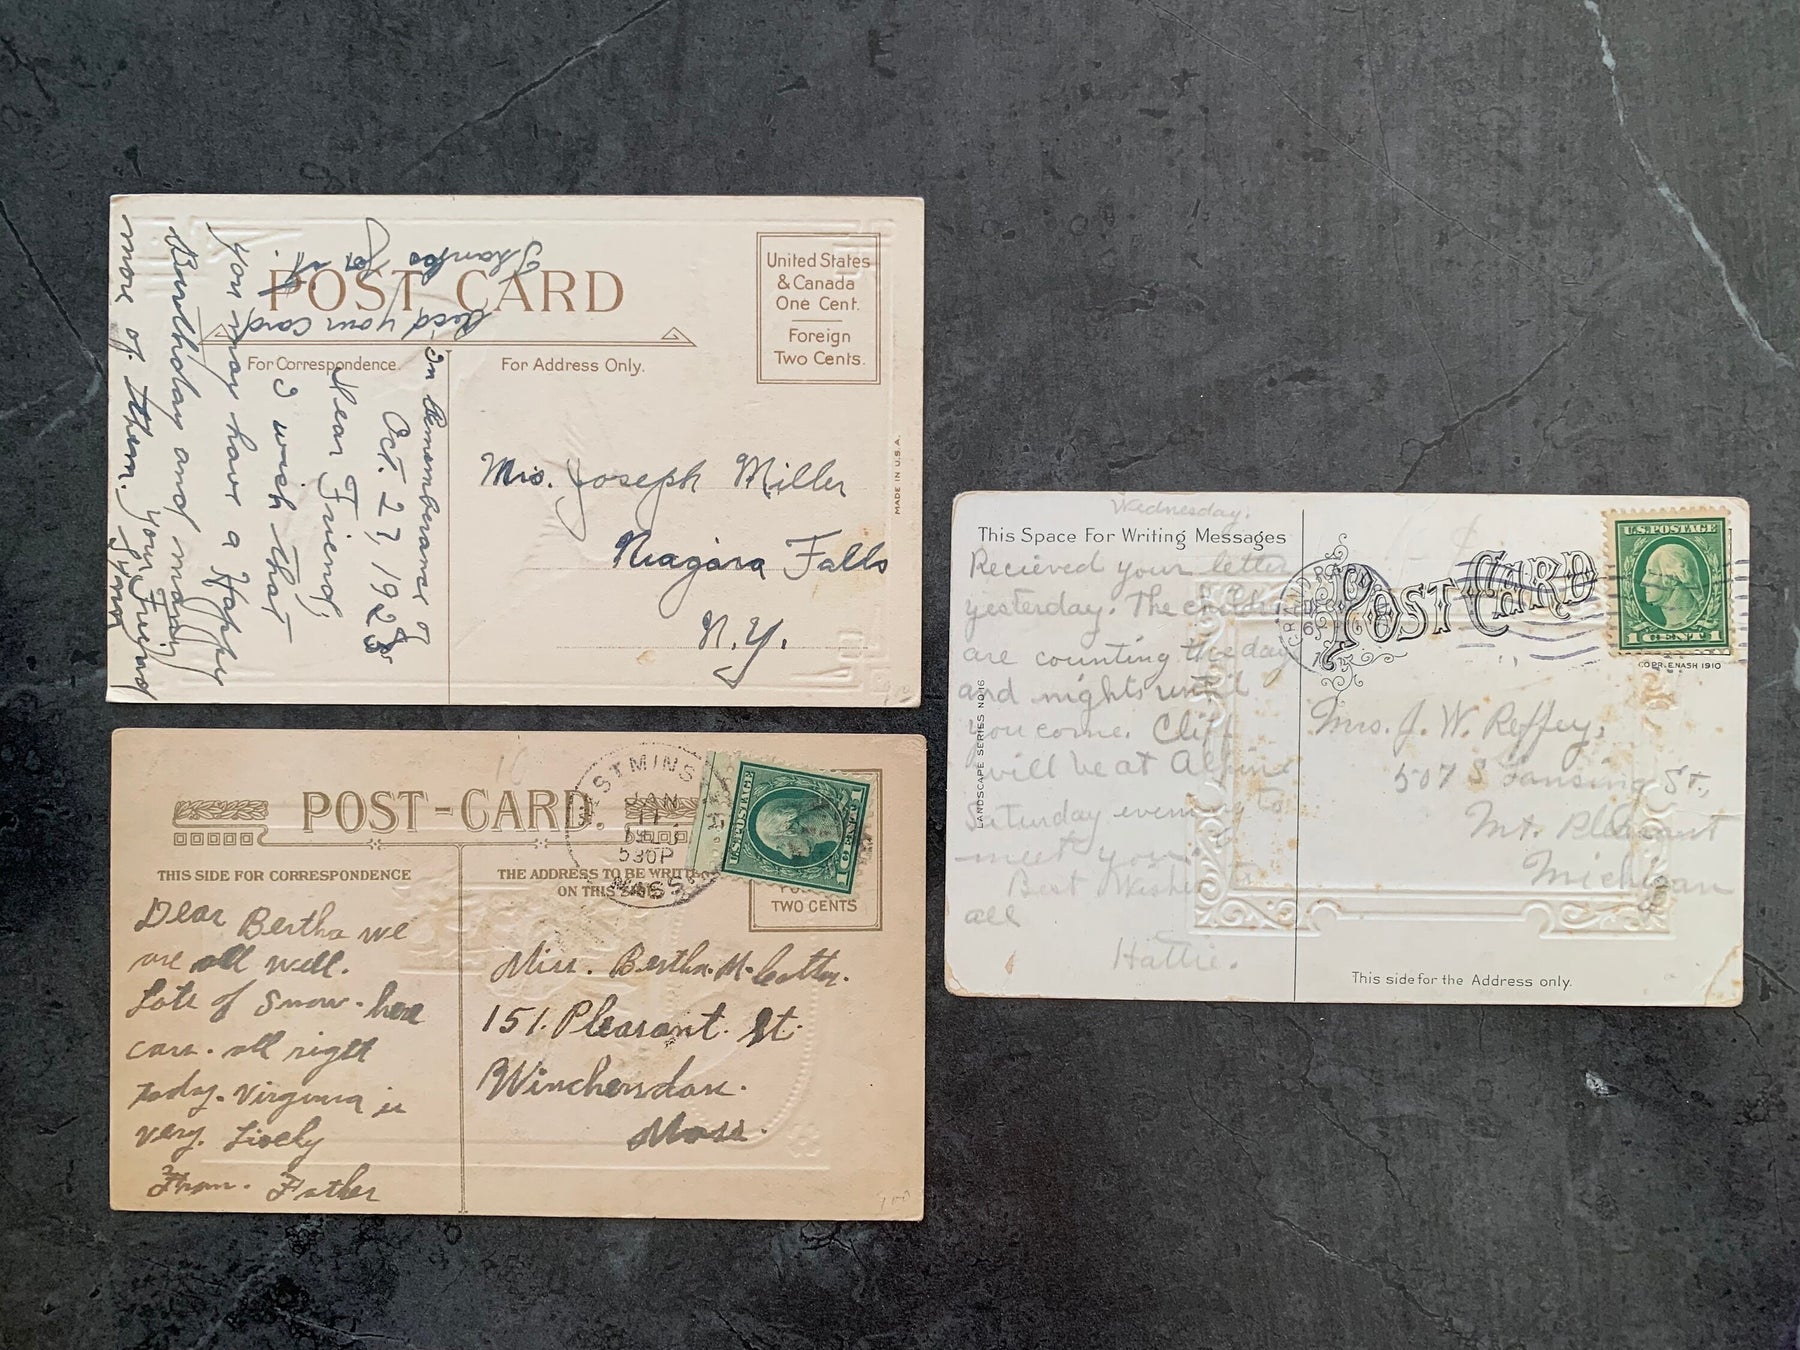 POST CARD
United States
& Canada
One Cent.
Foreign
Two Cents.
For Correspondence.
For Address Only.
MADE IN U.S.A.
In Rememberance of
Oct. 27, 1925
Dear Friend,
I wish that
you may have a Happy
Burthday and many
more of them.
your Friend
Recd your card
Thanks for it.
Mrs. Joseph Miller
Niagara Falls
N.Y.
POST-CARD.
THIS SIDE FOR CORRESPONDENCE
THE ADDRESS TO BE WRITTEN
ON THIS SIDE
TWO CENTS
WESTMINS
JAN
11
530P
MASS.
U.S. POSTAGE
1 CENT 1
Dear Bertha we
are all well.
Lots of Snow. here
cars. all right
today. Virginia is
very. Lively
From. Father
Miss. Bertha. M.
151. Pleasant. St.
Winchendon.
Mass.
Wednesday.
This Space For Writing Messages
Recieved your letter
yesterday. The children
are counting the day
and nights until
you come. Cliff
will be at Alpine
Saturday evening to
meet you.
Best Wishes to
all
Hattie.
LANDSCAPE SERIES NO 16
POST CARD
U.S. POSTAGE
1 CENT 1
COPR. E. NASH 1910
Mrs. J. W. Reffey,
507 S Lansing St.,
Mt. Pleasant
Michigan
This side for the Address only.